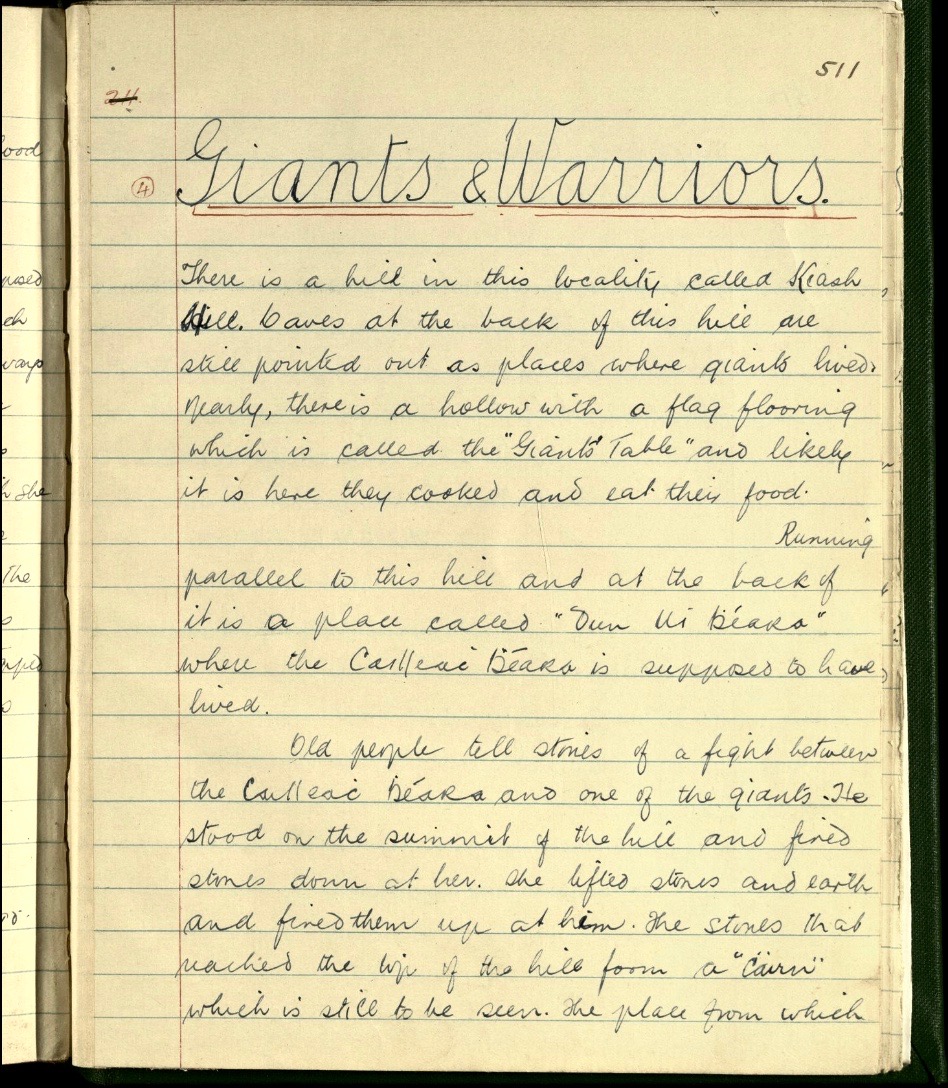 511
24.
Giants & Warriors.
④
There is a hill in this locality called Keash
Hill. Caves at the back of this hill are
still pointed out as places where giants lived.
Nearby, there is a hollow with a flag flooring
which is called the "Giants' Table" and likely
it is here they cooked and eat their food.
Running
parallel to this hill and at the back of
it is a place called "Dun Ui Béara"
where the Cailleaċ Béara is supposed to have
lived.
Old people tell stories of a fight between
the Cailleaċ Béara and one of the giants. He
stood on the summit of the hill and fired
stones down at her. She lifted stones and earth
and fired them up at him. The stones that
reached the top of the hill form a "Cairn"
which is still to be seen. The place from which
ood
posed
ch
ways
h she
The